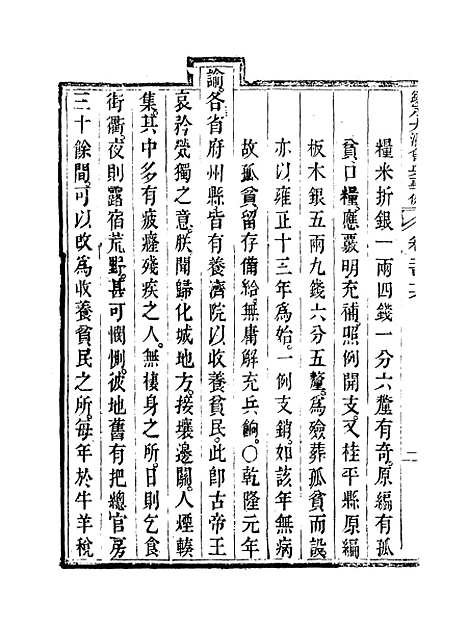 欽定大清會典事例 卷二百十六 二
糧米折銀一兩四錢一分六釐有奇。原編有孤
貧口糧。應覈明充補。照例開支。又桂平縣原編
板木銀五兩九錢六分五釐。爲殮葬孤貧而設。
亦以雍正十三年爲始。一例支銷。如該年無病
故孤貧。留存備給。無庸解充兵餉。〇乾隆元年
諭。各省府州縣皆有養濟院以收養貧民。此卽古帝王
哀矜煢獨之意。朕聞歸化城地方。接壤邊關。人煙輳
集。其中多有疲癃殘疾之人。無棲身之所。日則乞食
街衢。夜則露宿荒野。甚可憫惻。彼地舊有把總官房
三十餘間。可以改爲收養貧民之所。每年於牛羊稅